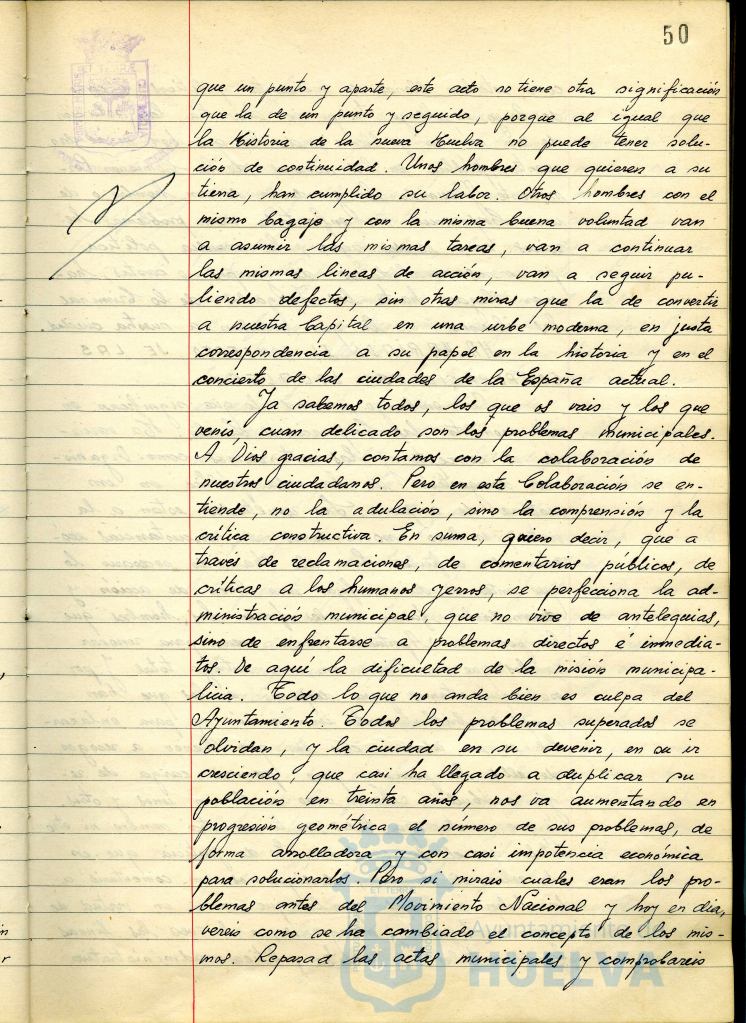 50
que un punto y aparte, este acto no tiene otra significación
que la de un punto y seguido, porque al igual que
la Historia de la nueva Huelva no puede tener solu-
ción de continuidad. Unos hombres que quieren a su
tierra, han cumplido su labor. Otros hombres con el
mismo bagaje y con la misma buena voluntad van
a asumir las mismas tareas, van a continuar
las mismas lineas de acción, van a seguir pu-
liendo defectos, sin otras miras que la de convertir
a nuestra Capital en una urbe moderna, en justa
correspondencia a su papel en la historia y en el
concierto de las ciudades de la España actual.
Ya sabemos todos, los que os vais y los que
venis, cuan delicado son los problemas municipales.
A Dios gracias, contamos con la colaboración de
nuestros ciudadanos. Pero en esta Colaboración se en-
tiende, no la adulación, sino la comprensión y la
crítica constructiva. En suma, quiero decir, que a
través de reclamaciones, de comentarios públicos, de
críticas a los humanos yerros, se perfecciona la ad-
ministración municipal, que no vive de antelequias,
sino de enfrentarse a problemas directos é inmedia-
tos. De aquí la dificultad de la misión municipa-
licia. Todo lo que no anda bien es culpa del
Ayuntamiento. Todos los problemas superados se
olvidan, y la ciudad en su devenir, en su ir
cresciendo, que casi ha llegado a duplicar su
población en treinta años, nos va aumentando en
progresión geométrica el número de sus problemas, de
forma arrolladora y con casi impotencia económica
para solucionarlos. Pero si mirais cuales eran los pro-
blemas antes del Movimiento Nacional y hoy en dia,
vereis como se ha cambiado el concepto de los mis-
mos. Repasad las actas municipales y comprobareis
HUELVA